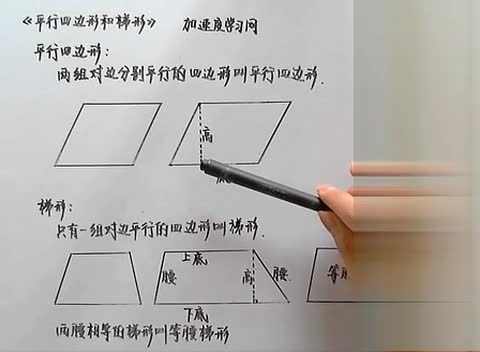 《平行四边形和梯形》 加速度学习问
平行四边形:
两组对边分别平行的四边形叫平行四边形.
高
底
梯形:
只有一组对边平行的四边形叫梯形.
上底
腰 高 腰 等腰
下底
两腰相等的梯形叫等腰梯形